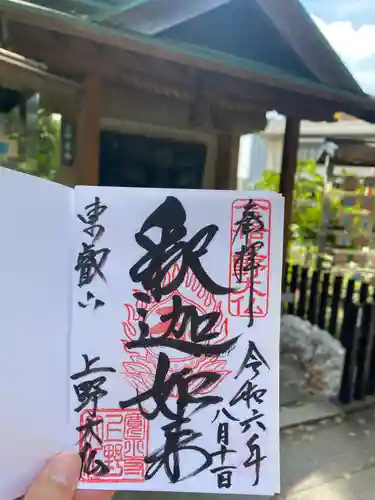 奉拝
令和六年
八月十一日
釈迦如来
東叡山
上野大仏